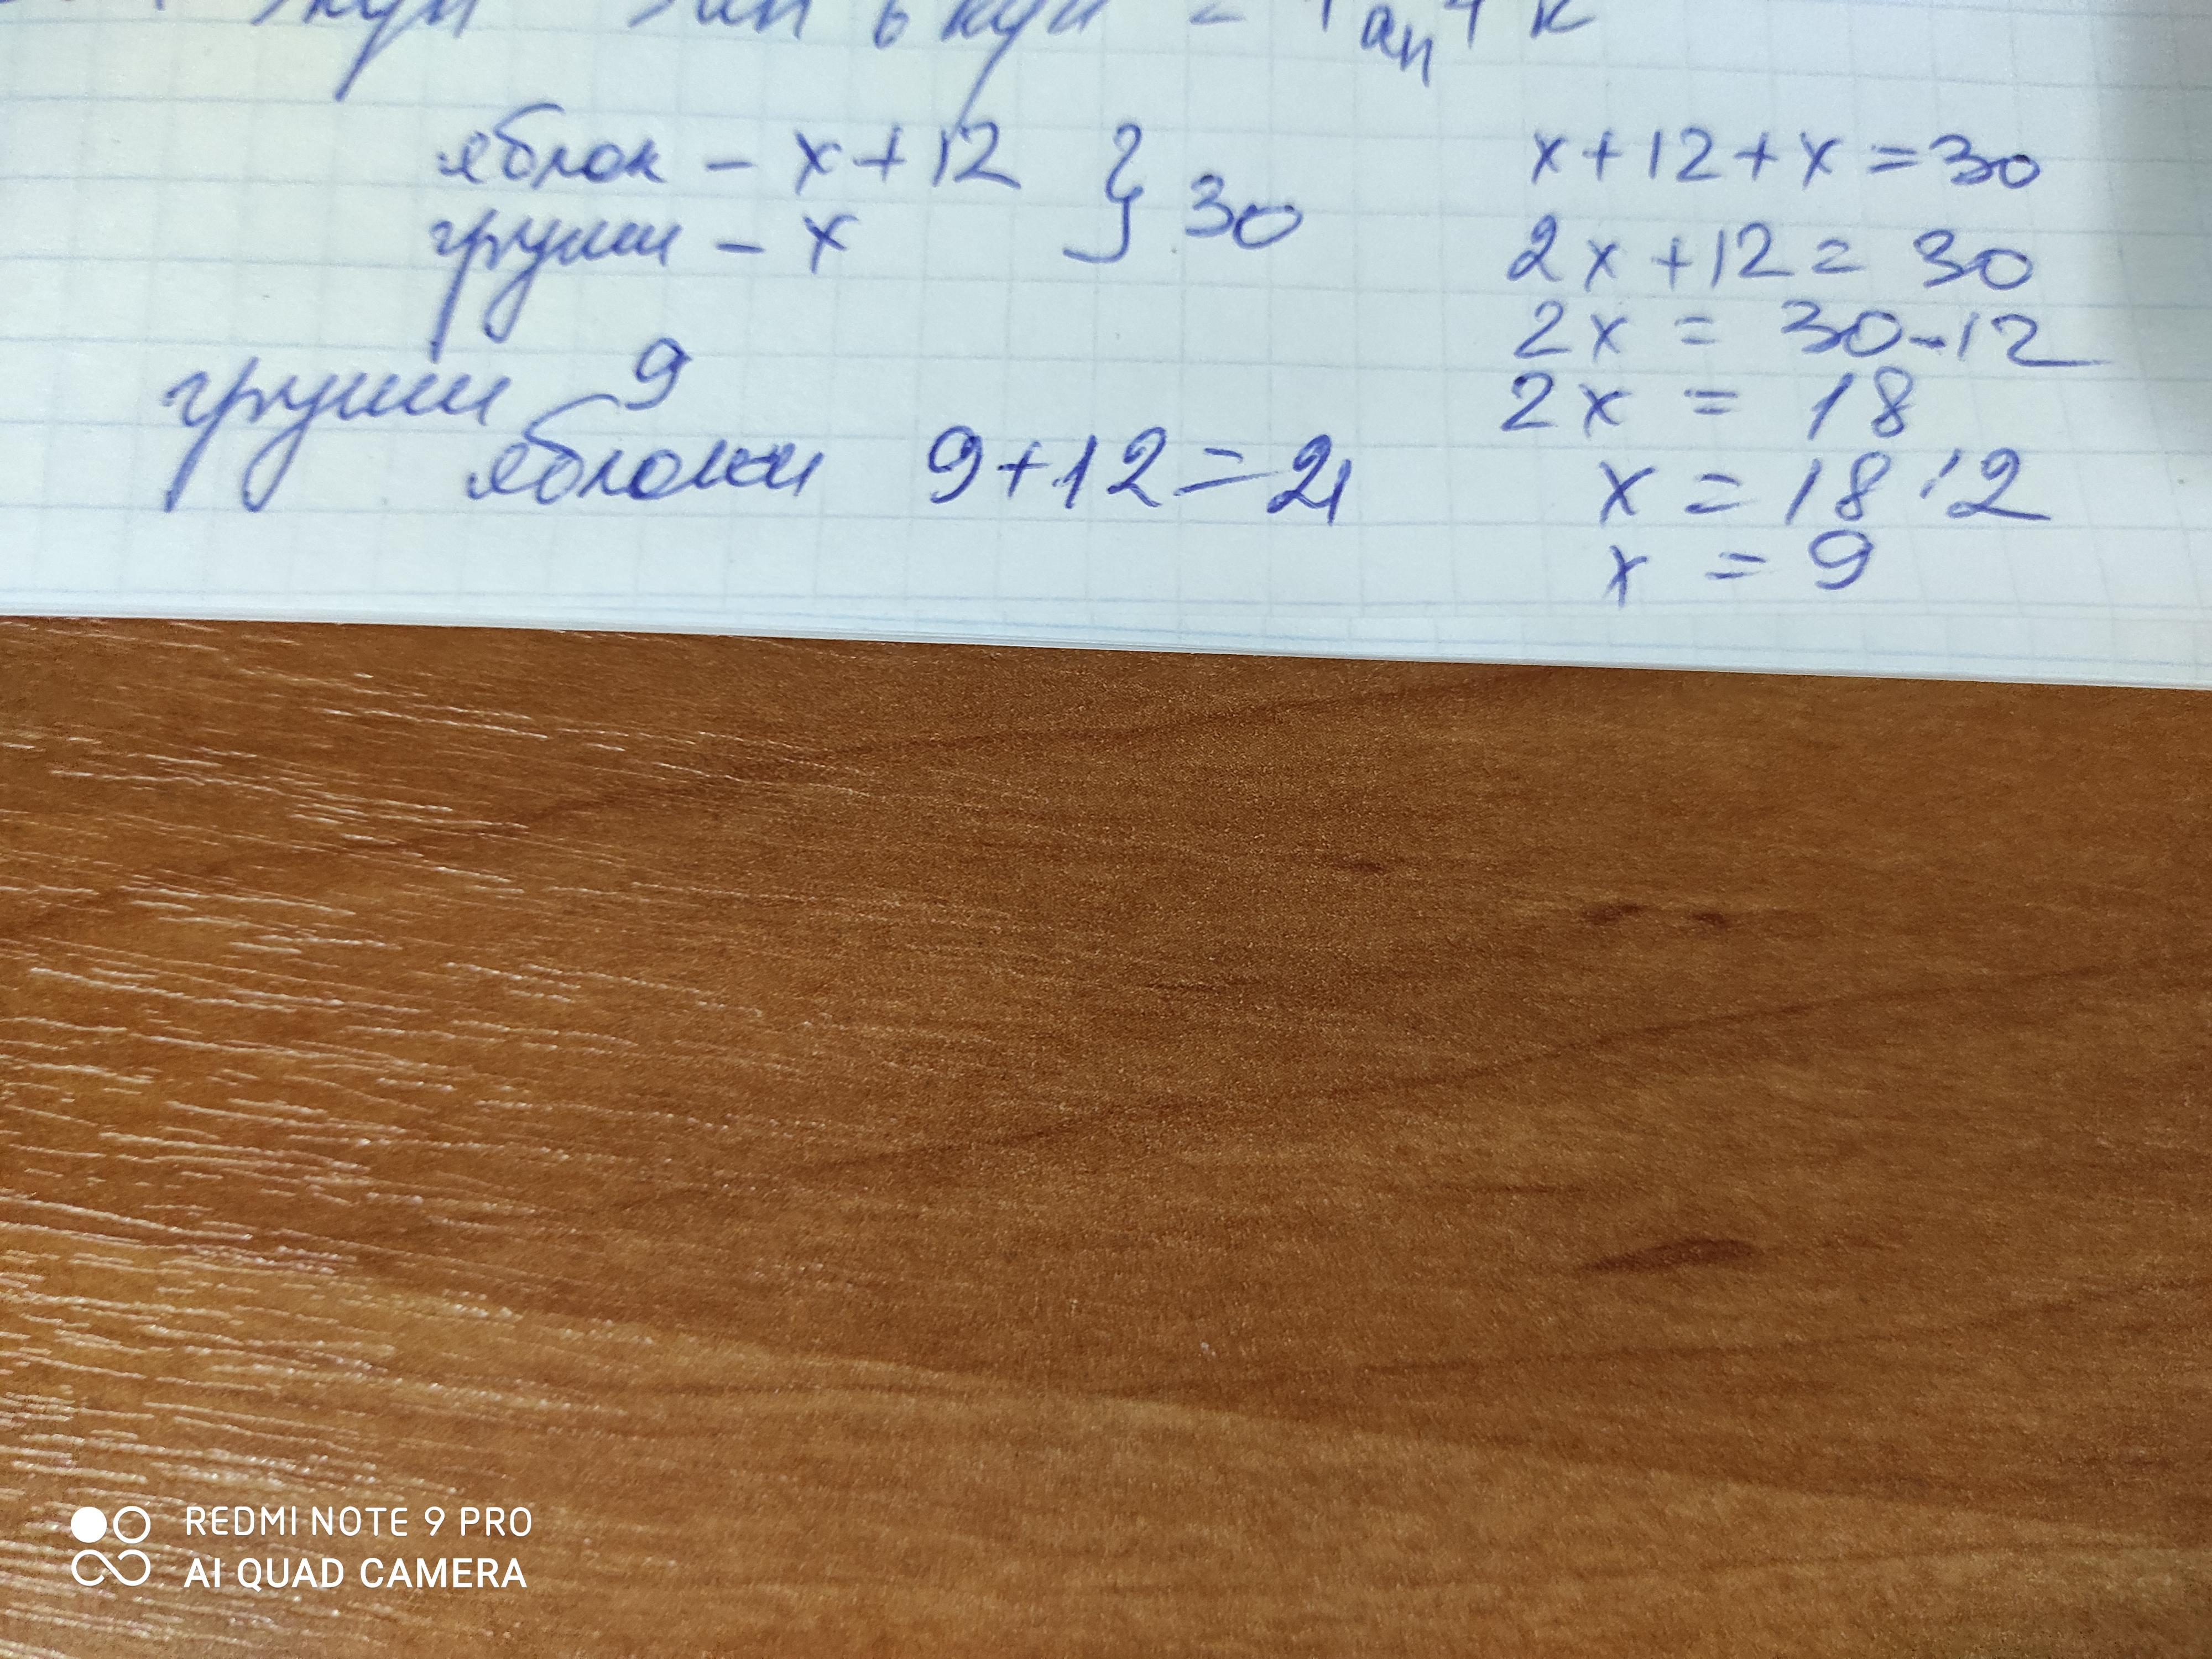 яблок - x+12 } 30
груши - x
груши 9
яблоки 9+12=21
x+12+x=30
2x+12=30
2x = 30-12
2x = 18
x = 18:2
x = 9
REDMI NOTE 9 PRO
AI QUAD CAMERA